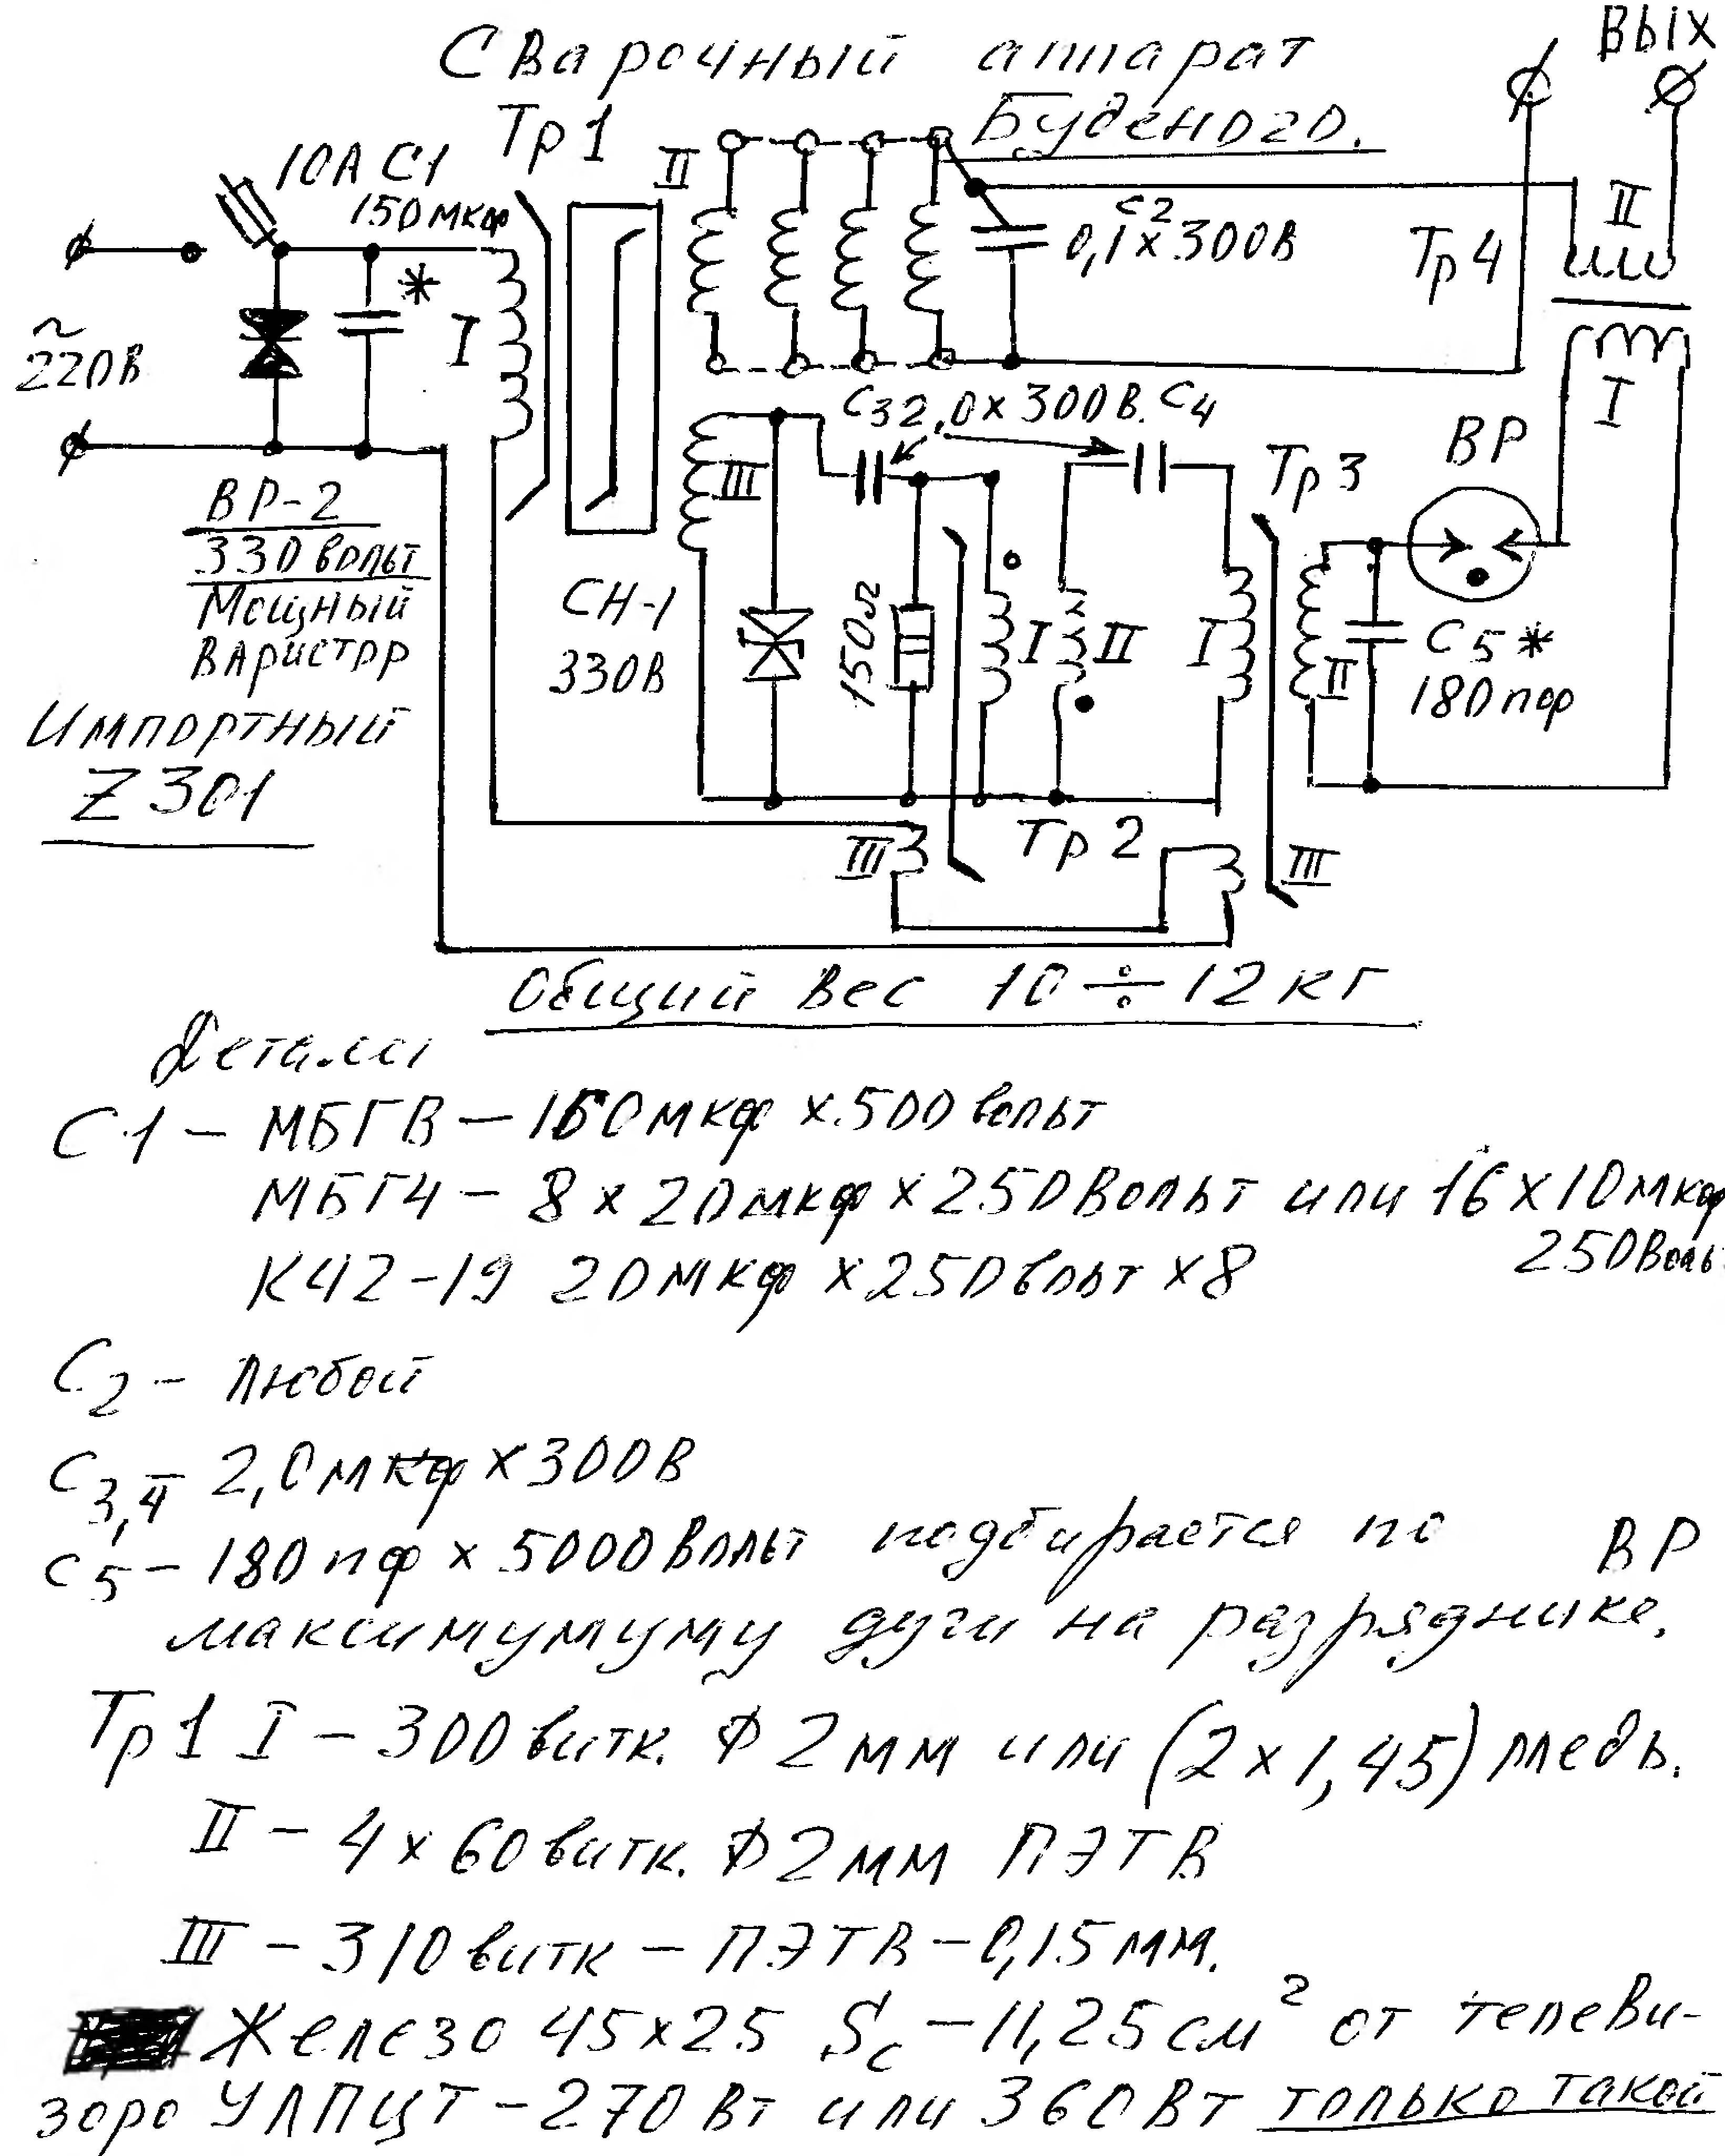 Сварочный аппарат
Буденого.
ВЫХ
Тр 1
10А С1
150 мкф
*
I
II
~
220В
С2
0,1 х 300В
Тр 4
II
I
С3 2,0 х 300В. С4
III
Тр 3
ВР
ВР-2
330 вольт
Мощный
варистор
Импортный
Z 301
СН-1
330В
150Ω
I
II
I
II
С5 *
180 пф
Тр 2
III
III
Общий вес 10 ÷ 12 кг
Детали
С1 – МБГВ – 160 мкф х 500 вольт
МБГЧ – 8 х 20 мкф х 250 Вольт или 16 х 10 мкф
250 Воль
К42-19 20 мкф х 250 вольт х 8
С2 – любой
С3,4 2,0 мкф х 300В
С5 – 180 пф х 5000 Вольт подбирается по ВР
максимумуму дуги на разряднике.
Тр 1 I – 300 витк. ф 2 мм или (2 х 1,45) медь.
II – 4 х 60 витк. ф 2 мм ПЭТВ
III – 310 витк – ПЭТВ – 0,15 мм.
Железо 45х25 Sc – 11,25 см² от телеви-
зоро УЛПЦТ – 270 Вт или 360 Вт только такой